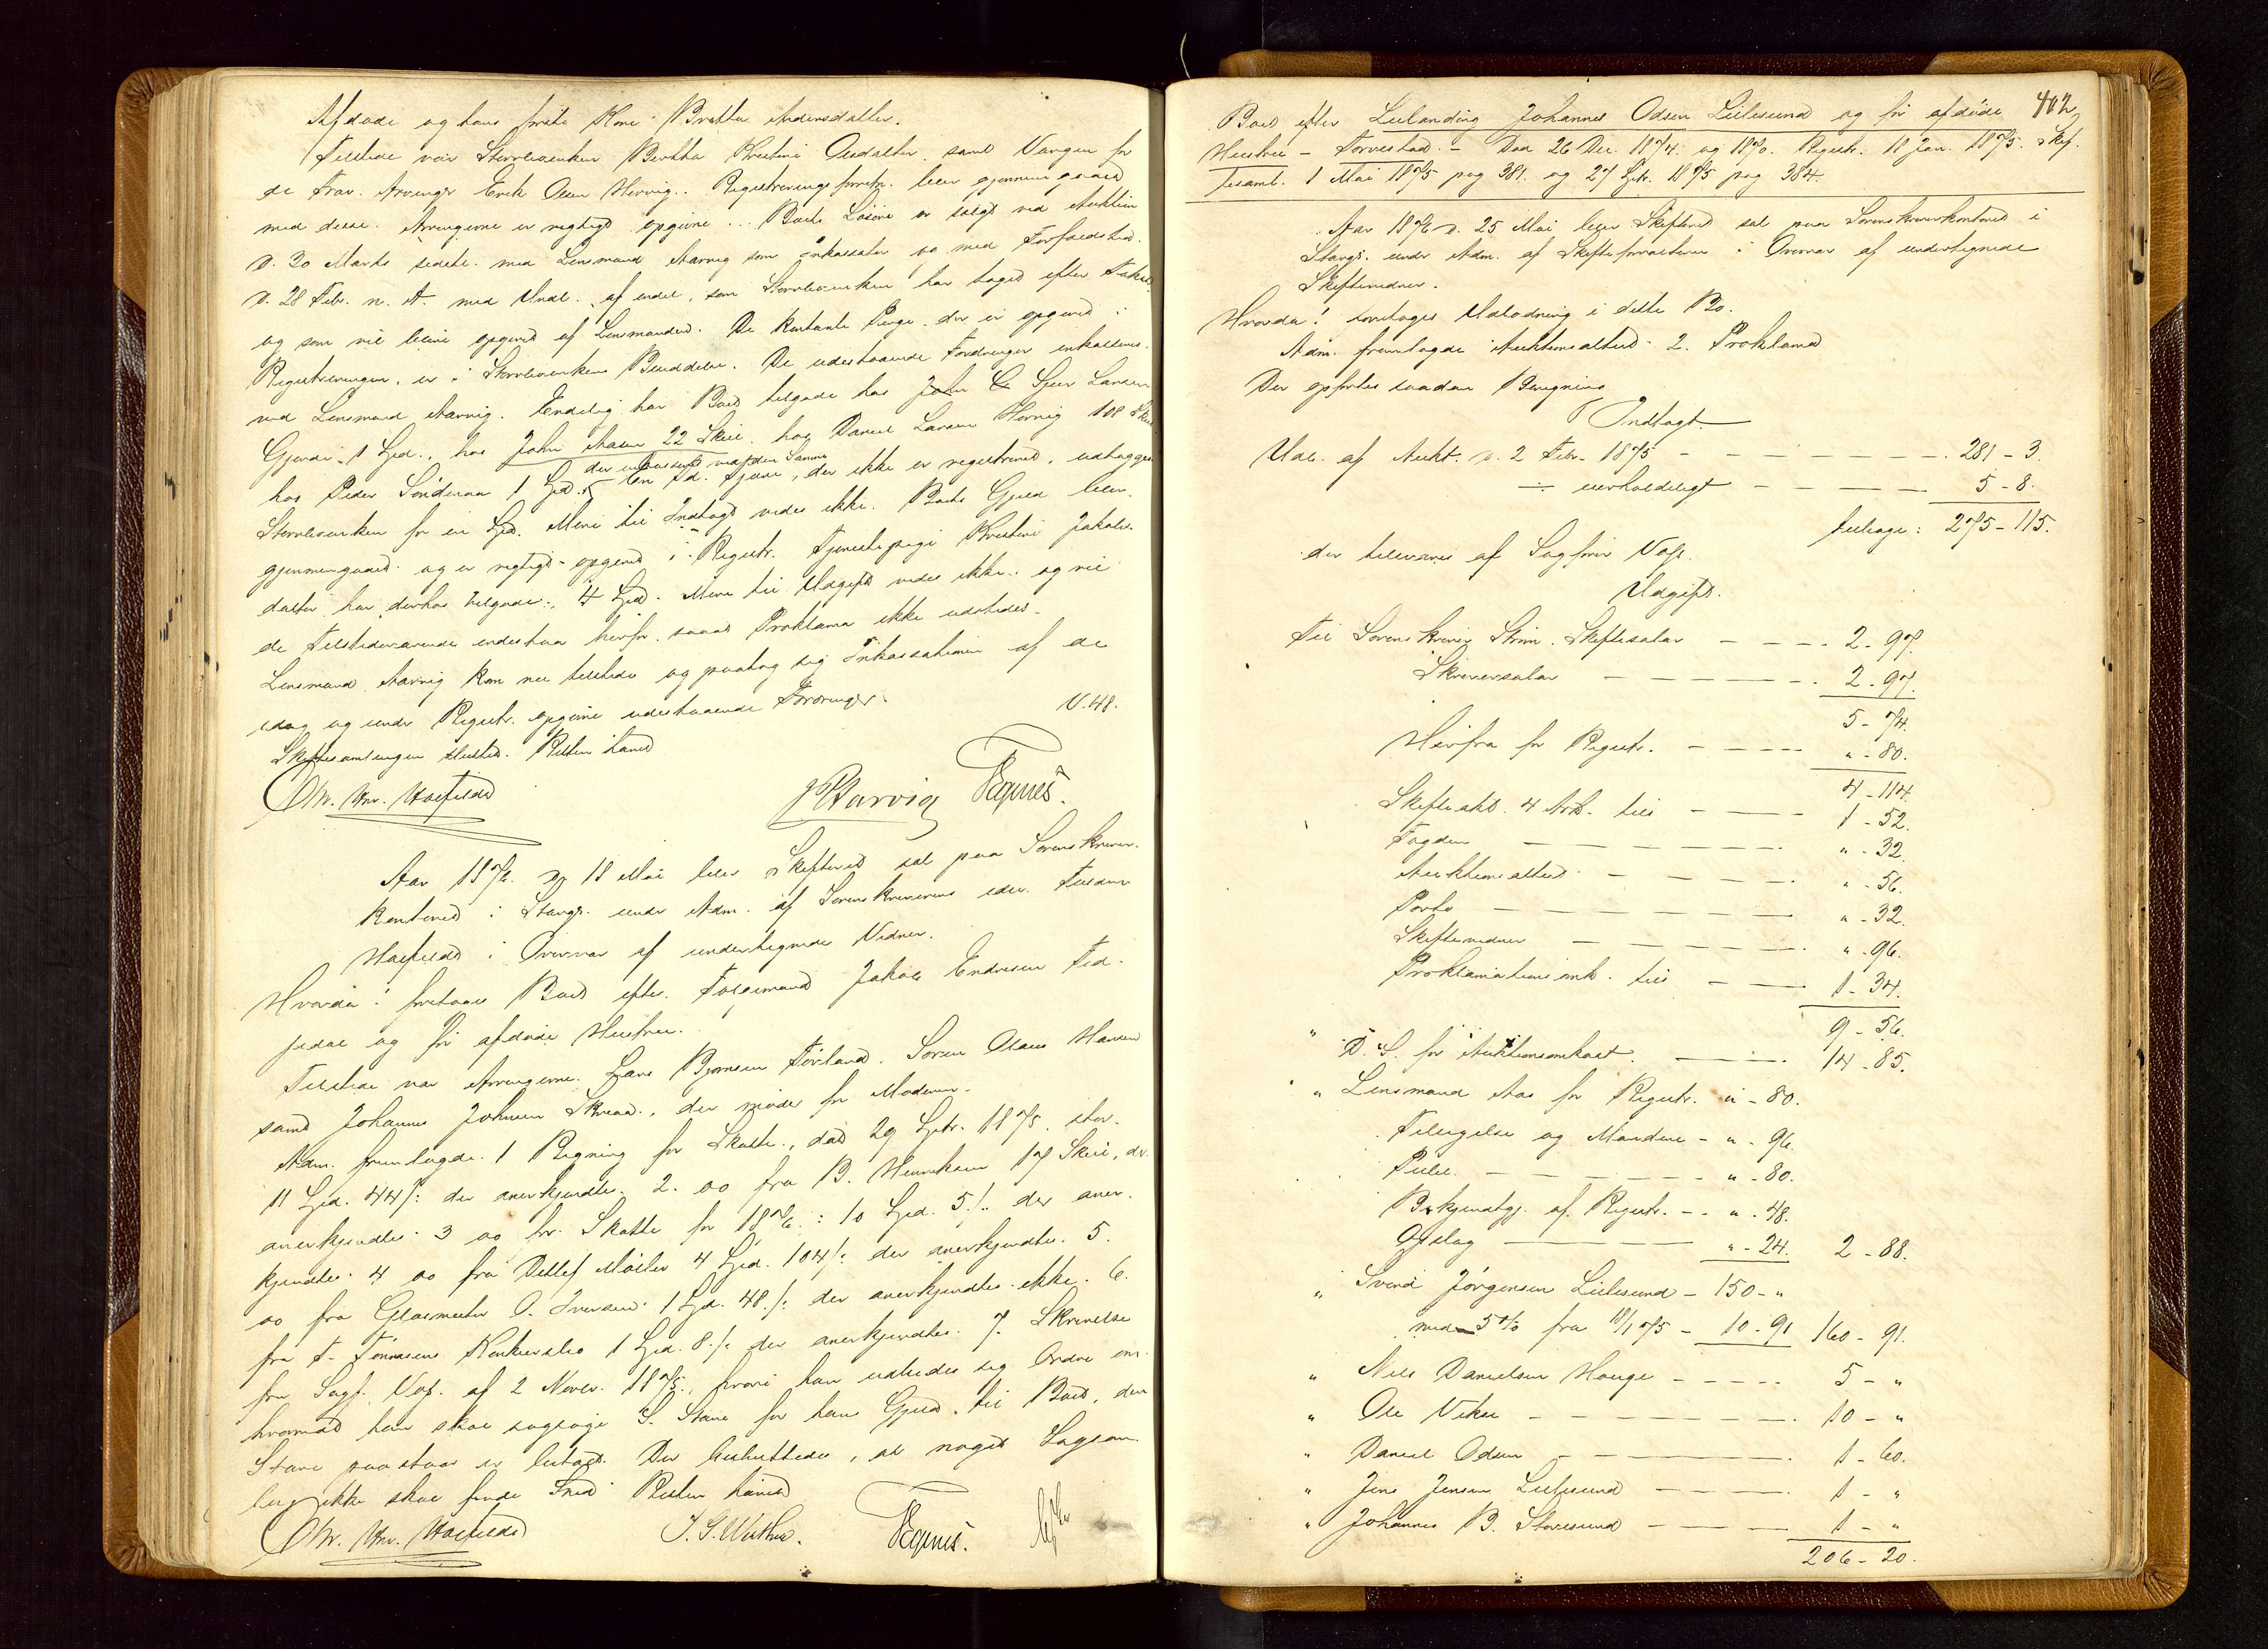 Afdøde og hans første Kone: Brettha Andersdatter.
Tilstede var Stervboenken Berthe Kristine Olsdatter, samt Værgen for
de frav. Arvinger Erik Olsen Hervig. Registreringsforretn. blev gjennemgaaet
med disse. Arvingerne er rigtigt opgivne. Boets Løsøre er solgt ved Auktion
d. 30 Marts sidstl. med Lensmand Aarvig som Inkassator og med Forfaldstid
d. 28 Febr. n. A. med Undt. af endel, som Stervboenken har taget efter Taksten
og som vil blive opgivet af Lensmanden. De kontante Penge, der er opgivet i
Registreringen, er i Stervboenkens Besiddelse. De udestaaende Fordringer inkasseres
ved Lensmand Aarvig. Endelig har Boet tilgode hos Sjur Larsen
Gjerde 1 Spd., hos John Aasen 22 Skill. hos Daniel Larsen Hervig 108 Skill.
der inkasseres ved den Samme
hos Peder Sønderaa 1 Spd. En Fd. Fjære, der ikke er registreret, udlægges
Stervboenken for en Spd. Mere til Indtægt vides ikke. Boets Gjæld blev
gjennemgaaet og er rigtigt opgivet i Registr. Tjenestepige Kristine Jakobs-
datter har derhos tilgode: 4 Spd. Mere til Udgift vides ikke og vil
de Tilstedeværende indestaa herfor, saaat Proklama ikke udstedes.
Lensmand Aarvig kom nu tilstede og paatog sig Inkassationen af de
idag og under Registr. opgivne udestaaende Fordringer.
Skiftesamlingen sluttet. Retten hævet
V. 48.
Chr. Hnr. Hatfield
P Aarvig Tegnes.
Aar 1876 d. 18 Mai blev Skifteret sat paa Sorenskriver-
kontoret i Stavgr. under Adm. af Sorenskriverens edsv. Fuldm.
Hatfield i Overvær af undertegnede Vidner.
Hvorda! foretages Boet efter Følgemand Jakob Endresen Fed-
jedal og før afdøde Hustru.
Tilstede var Arvingerne Lars Bjørnsen Førland, Søren Olaus Hansen
samt Johannes Johnsen Skreaa, der møder for Moderen.
Adm. fremlagde 1 Regning for Skatte, dat 29 Septr. 1875, stor
11 Spd. 44 /: der anerkjendtes. 2. do fra B. Henriksen 17 Skill, der
anerkjendtes. 3 do for Skatte for 1876: 10 Spd. 5 /: der aner-
kjendtes. 4 do fra Detlef Møller 4 Spd. 104 /: der anerkjendtes. 5.
do fra Glasmester O. Iversen 1 Spd. 48 /: der anerkjendtes ikke. 6.
fra T. Tønnesens Konkursbo 1 Spd. 8 /: der anerkjendtes. 7. Skrivelse
fra Sagf. Vos. af 2 Novbr. 1875, hvori han udbeder sig Ordre om
hvorvidt han skal sagsøge S. Stave for hans Gjæld til Boet, den
Stave paastaar er betalt. Der besluttedes, at noget Sagsan-
læg ikke skal finde Sted Retten hævet
Chr. Hnr. Hatfield J. G. Wathne. Tegnes.
402
Boet efter Leilænding Johannes Odsen Lillesund og før afdøde
Hustru – Torvestad – Død 26 Dec. 1874 og 1870. Registr. 18 Jan. 1875. Skf.
tesaml. 1 Mai 1875 pag 381. og 27 Sptr. 1875 pag 384.
Aar 1876 d. 25 Mai blev Skifteret sat paa Sorenskriverkontoret i
Stavgr. under Adm. af Skifteforvalteren i Overvær af undertegnede
Skiftevidner.
Hvorda! foretages Udlodning i dette Bo.
Adm. fremlagde Auktionsattest 2. Proklama
Der opførtes saadan Beregning
Indtægt
Udb. af Aukt. d. 2 Febr. 1875 – 281 – 3.
÷ uerholdeligt – 5 – 8.
tilbage: 275 – 115.
der tilsvares af Sagfører Vos.
Udgift.
Til Sorenskriver Strøm. Skiftesalær – 2 – 97.
Skriversalær – 2 – 97.
5 – 74.
Herfra for Registr. – " – 80.
4 – 114.
Skifteakt. 4 Ark. till – 1 – 52.
Fogden – " – 32.
Auktionsattest – " – 56.
Porto – " – 32.
Skiftevidner – " – 96.
Proklamationsomk. till – 1 – 34.
9 – 56.
" D. S. for Auktionsomkost. – 14 – 85.
" Lensmand Aas for Registr. " – 80.
Tilsigelse og Mændene – " – 96.
Pulle. – " – 80.
Bekjendtgj. af Registr. – " – 48.
Opslag – " – 24. 2 – 88.
" Svend Jørgensen Lillesund – 150 – "
med 5% fra 18/1 75 – 10 – 91 160 – 91.
" Nils Danielsen Hauge – 5 – "
" Ole Vikse – 10 – "
" Daniel Odsen – 1 – 60.
" Jens Jensen Lillesund – 1 – "
" Johannes B. Storesund – 1 – "
206 – 20.